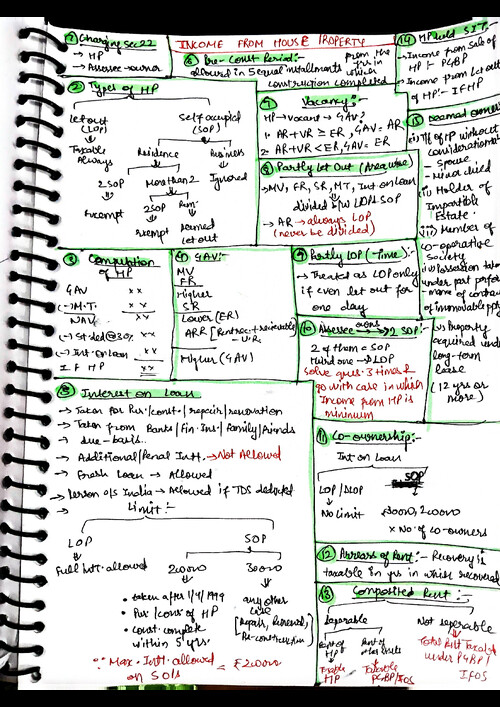 INCOME FROM HOUSE PROPERTY
1 Charging Sec 22
→ HP
→ Assessee - owner
6 Pre-Const Period:-
allowed in 5 equal installments from the yr in which
construction completed
2 Types of HP
Let out
(LOP)
Self occupied
(SOP)
Taxable
Always
Residence
Business
2 SOP
More than 2
Ignored
Exempt
2 SOP
Rem.
exempt
Deemed
Let out
7 Vacancy:-
HP → Vacant → GAV:-
1. AR+VR ≥ ER, GAV = AR
2. AR+VR < ER, GAV = ER
8 Partly Let Out (Area wise)
→ MV, FR, SR, MT, Int on Loan
divided b/w LOP & SOP
→ AR → always LOP
(never be divided)
3 Computation
of HP
GAV xx
(-) M.T. xx
NAV xx
(-) St. ded @ 30% xx
(-) Int. on loan xx
IFHP xx
4 GAV:-
MV
FR
Higher
SR
Lower (ER)
ARR
Higher (GAV)
9 Partly LOP (Time):-
→ Treated as LOP only
if even let out for
one day
10 Assessee owns > 2 SOP:-
2 of them = SOP
Third one → DLOP
Solve ques. 3 times &
go with case in which
Income from HP is
minimum
5 Interest on Loan
→ Taken for Pur./const./repair/renovation
→ Taken from Banks/Fin. Ins/family/friends
→ due-basis..
→ Additional/Penal Intt. → Not Allowed
→ Fresh Loan → Allowed
→ Person o/s India → Allowed if TDS deducted
→ Limit:-
LOP
SOP
Full intt. allowed
200000
30000
• taken after 1/4/1999
• Pur/const of HP
• const. complete
within 5 yrs.
any other
case
[Repair, Renewal,
Re-construction]
∵ Max. Intt. allowed = ₹ 200000
on SOPs
11 Co-ownership:-
Int on Loan
LOP/DLOP
SOP
No Limit
30000, 200000
× No. of co-owners
12 Arrears of Rent:- Recovery is
taxable in yrs in which recovered
13 Composited Rent:-
Seperable
Not seperable
Part of
HP
Taxable
HP
Taxable
PGBP/IFOS
Total Rent Taxable
under PGBP/
IFOS
14 HP held SIT:-
→ Income from Sale of
HP :- PGBP
→ Income from Let out
of HP :- IFHP
15 Deemed owner
(i) Tf of HP without
consideration
- Spouse
- Minor child
(ii) Holder of
Impartible
Estate.
(iii) Member of
co-operative
Society
(iv) Possession taken
under part perfor
mance of contract
of immovable ppty
(v) Property
acquired under
long-term
lease
(12 yrs or
more)